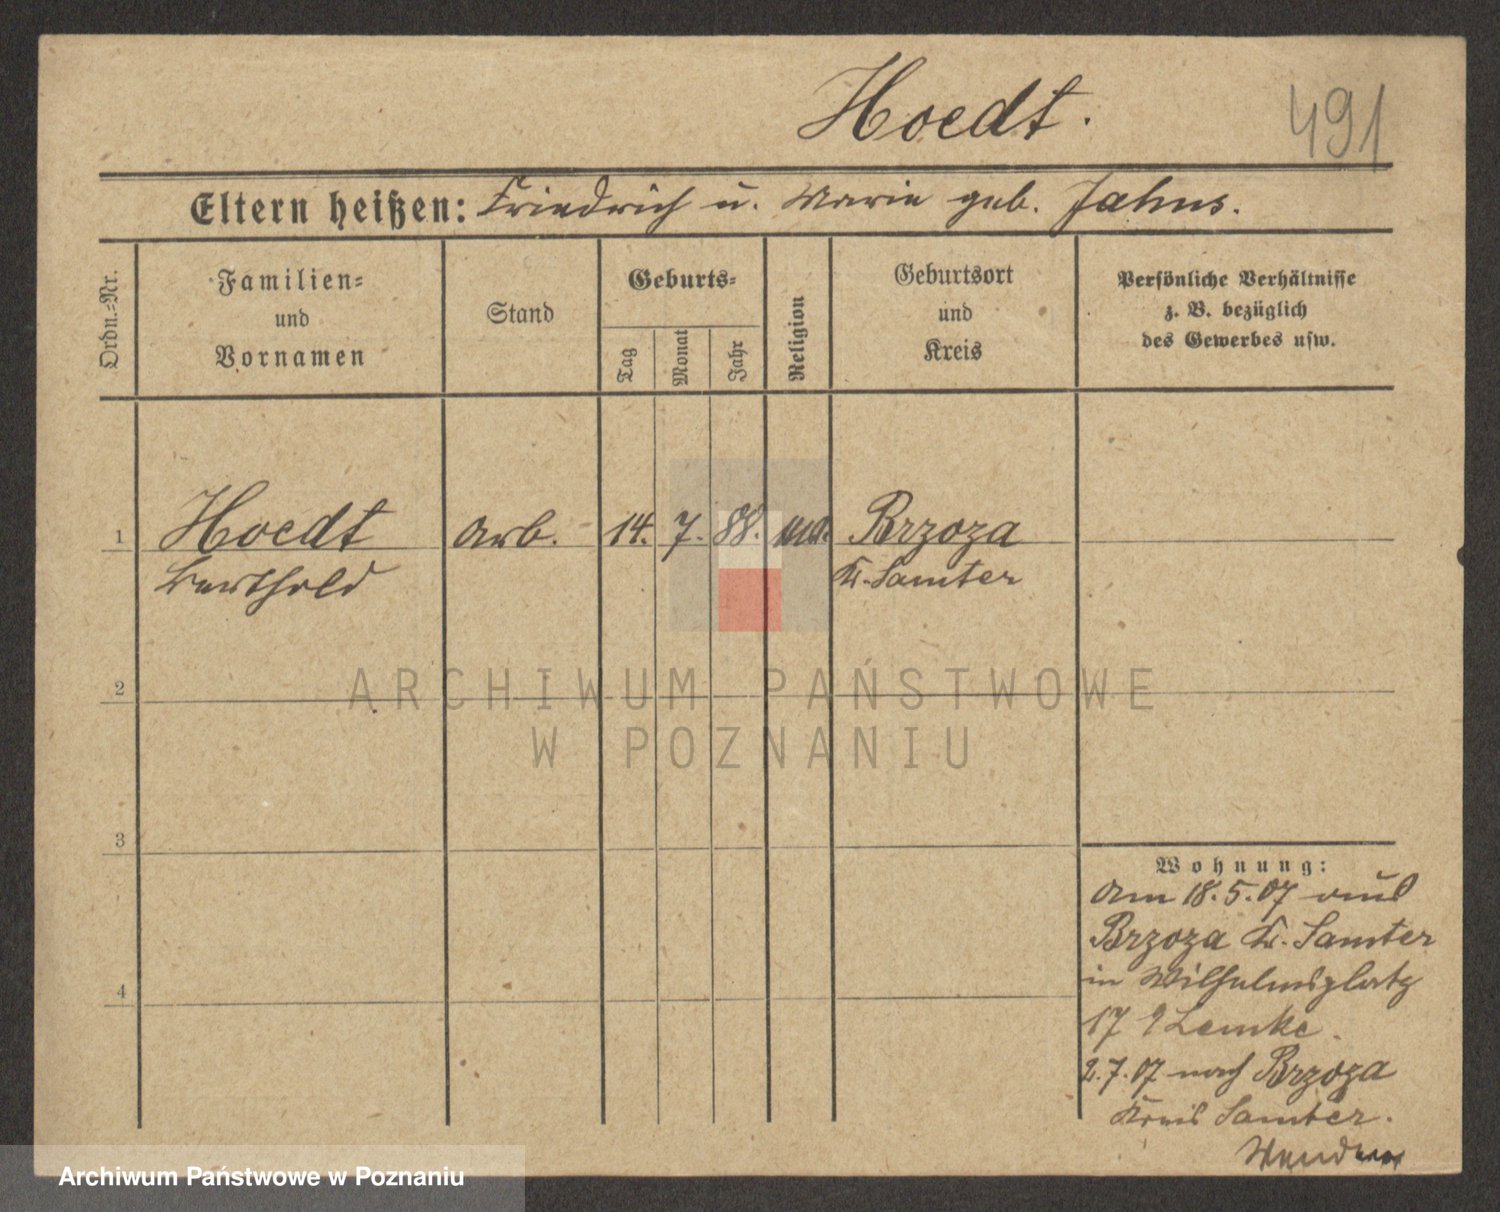 Hoedt.
491
Eltern heißen: Friedrich u. Marie geb. Jahns.
Ordn.-Nr.
Familien-
und
Vornamen
Stand
Geburts-
Tag
Monat
Jahr
Religion
Geburtsort
und
Kreis
Persönliche Verhältnisse
z. B. bezüglich
des Gewerbes usw.
1
Hoedt
Berthold
Arb.
14.
7.
88.
Brzoza
Kr. Samter
2
3
4
Wohnung:
Am 18.5.07 aus
Brzoza Kr. Samter
in Wilhelmsplatz
17 Lemke.
2.7.07 nach Brzoza
Kreis Samter.
Wenden
ARCHIWUM PAŃSTWOWE
W POZNANIU
Archiwum Państwowe w Poznaniu